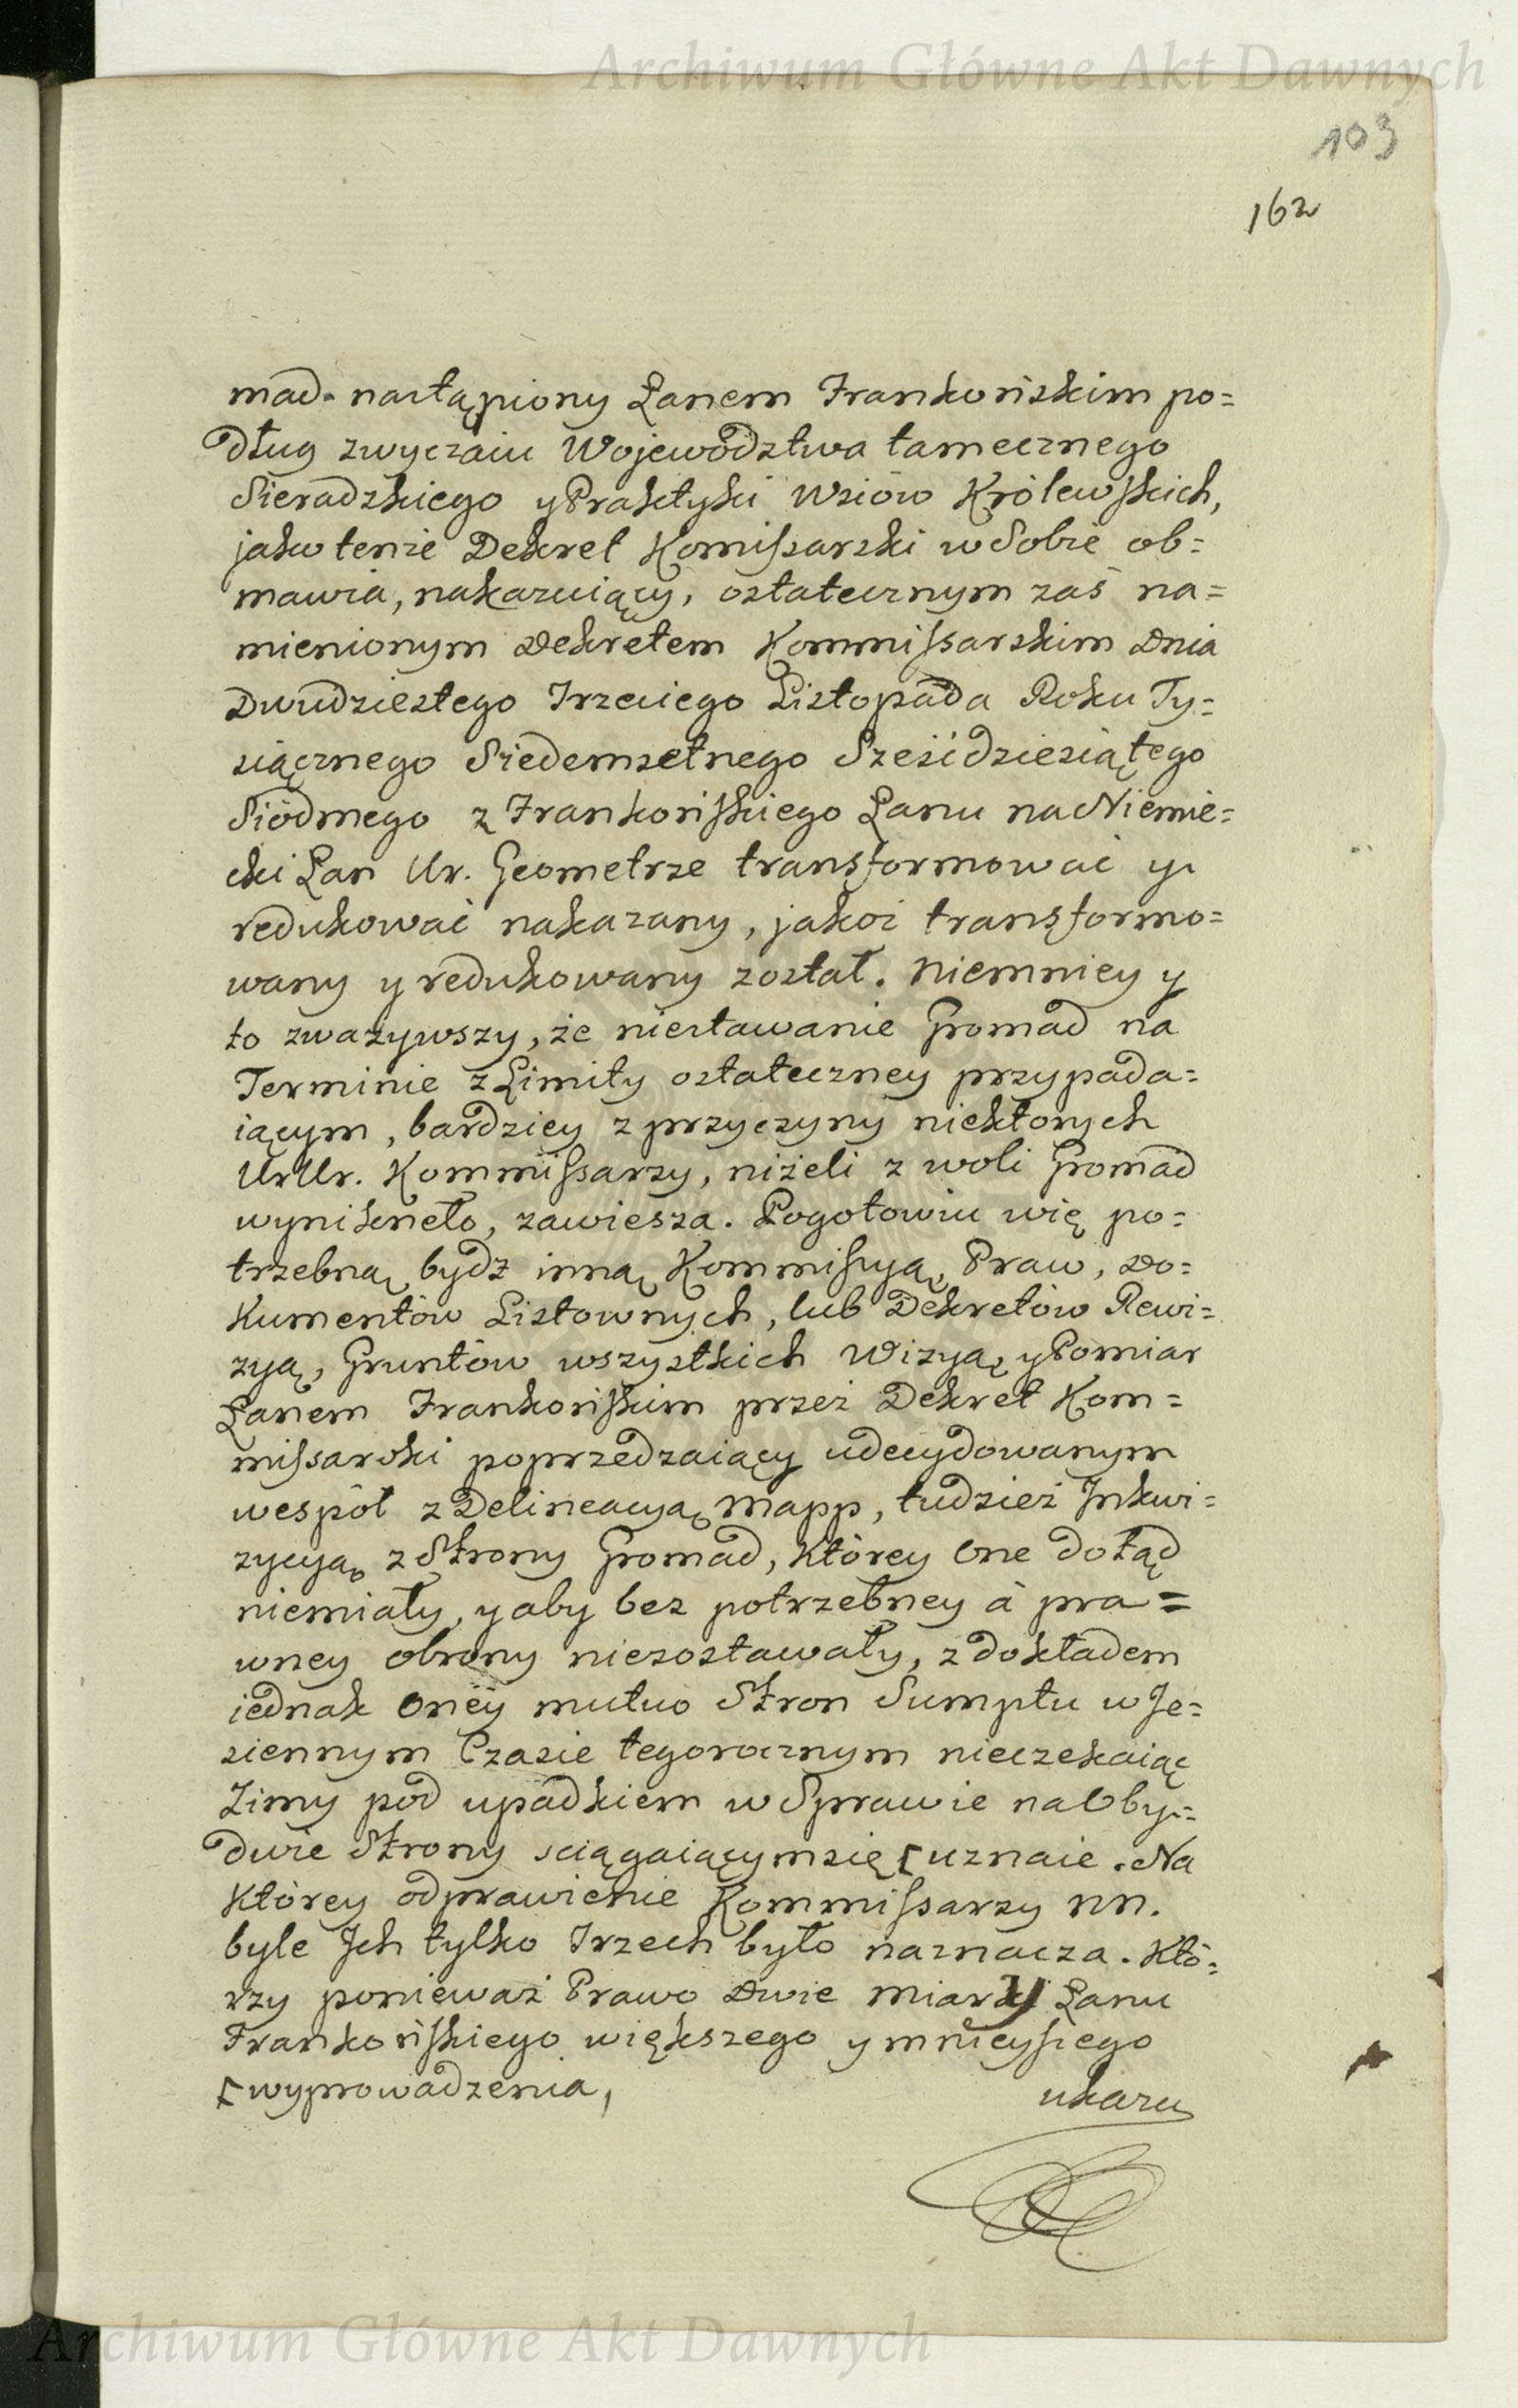 Archiwum Główne Akt Dawnych
103
162
mad. nastąpiony Łanem Frankońskim po=
dług zwyczaiu Wojewodztwa tamecznego
Sieradzkiego y Praktyki Wsiów Królewskich,
jako tenże Dekret Komissarski w Sobie ob=
mawia, nakazuiący, ostatecznym zaś na=
mienionym Dekretem Kommissarskim Dnia
Dwudziestego Trzeciego Listopada Roku Ty=
siącznego Siedemsetnego Sześćdziesiątego
Siódmego z Frankońskiego Łanu na Niemie=
cki Łan Ur. Geometrze transformować y
redukować nakazany, jakoż transformo=
wany y redukowany został. Niemniey y
to zważywszy, że niestawanie Gromad na
Terminie z Limity ostateczney przypada=
iącym, bardziey z przyczyny niektorych
UrUr. Kommissarzy, niżeli z woli Gromad
wynikneło, zawiesza. Pogotowiu wię po=
trzebną bydz inną Kommissyą, Praw, Do=
kumentów Listownych, lub Dekretów Rewi=
zyą, Gruntów wszystkich Wizyą y Pomiar
Łanem Frankońskim przez Dekret Kom=
missarski poprzedzaiący udecydowanym
wespół z Delineacyą Mapp, tudzież Inkwi=
zycyą z Strony Gromad, którey One dotąd
niemiały, y aby bez potrzebney à pra=
wney obrony niezostawały, z dokładem
iednak Oney mutuo Stron Sumptu w Je=
siennym Czasie tegorocznym nieczekaiąc
Zimy pod upadkiem w Sprawie na Oby=
dwie Strony sciągaiącym się [ uznaie. Na
którey odprawienie Kommissarzy NN.
byle Ich tylko Trzech było naznacza. Któ=
rzy ponieważ Prawo Dwie miary Łanu
Frankońskiego większego y mnieyszego
[ wyprowadzenia,
ukazu
Archiwum Główne Akt Dawnych